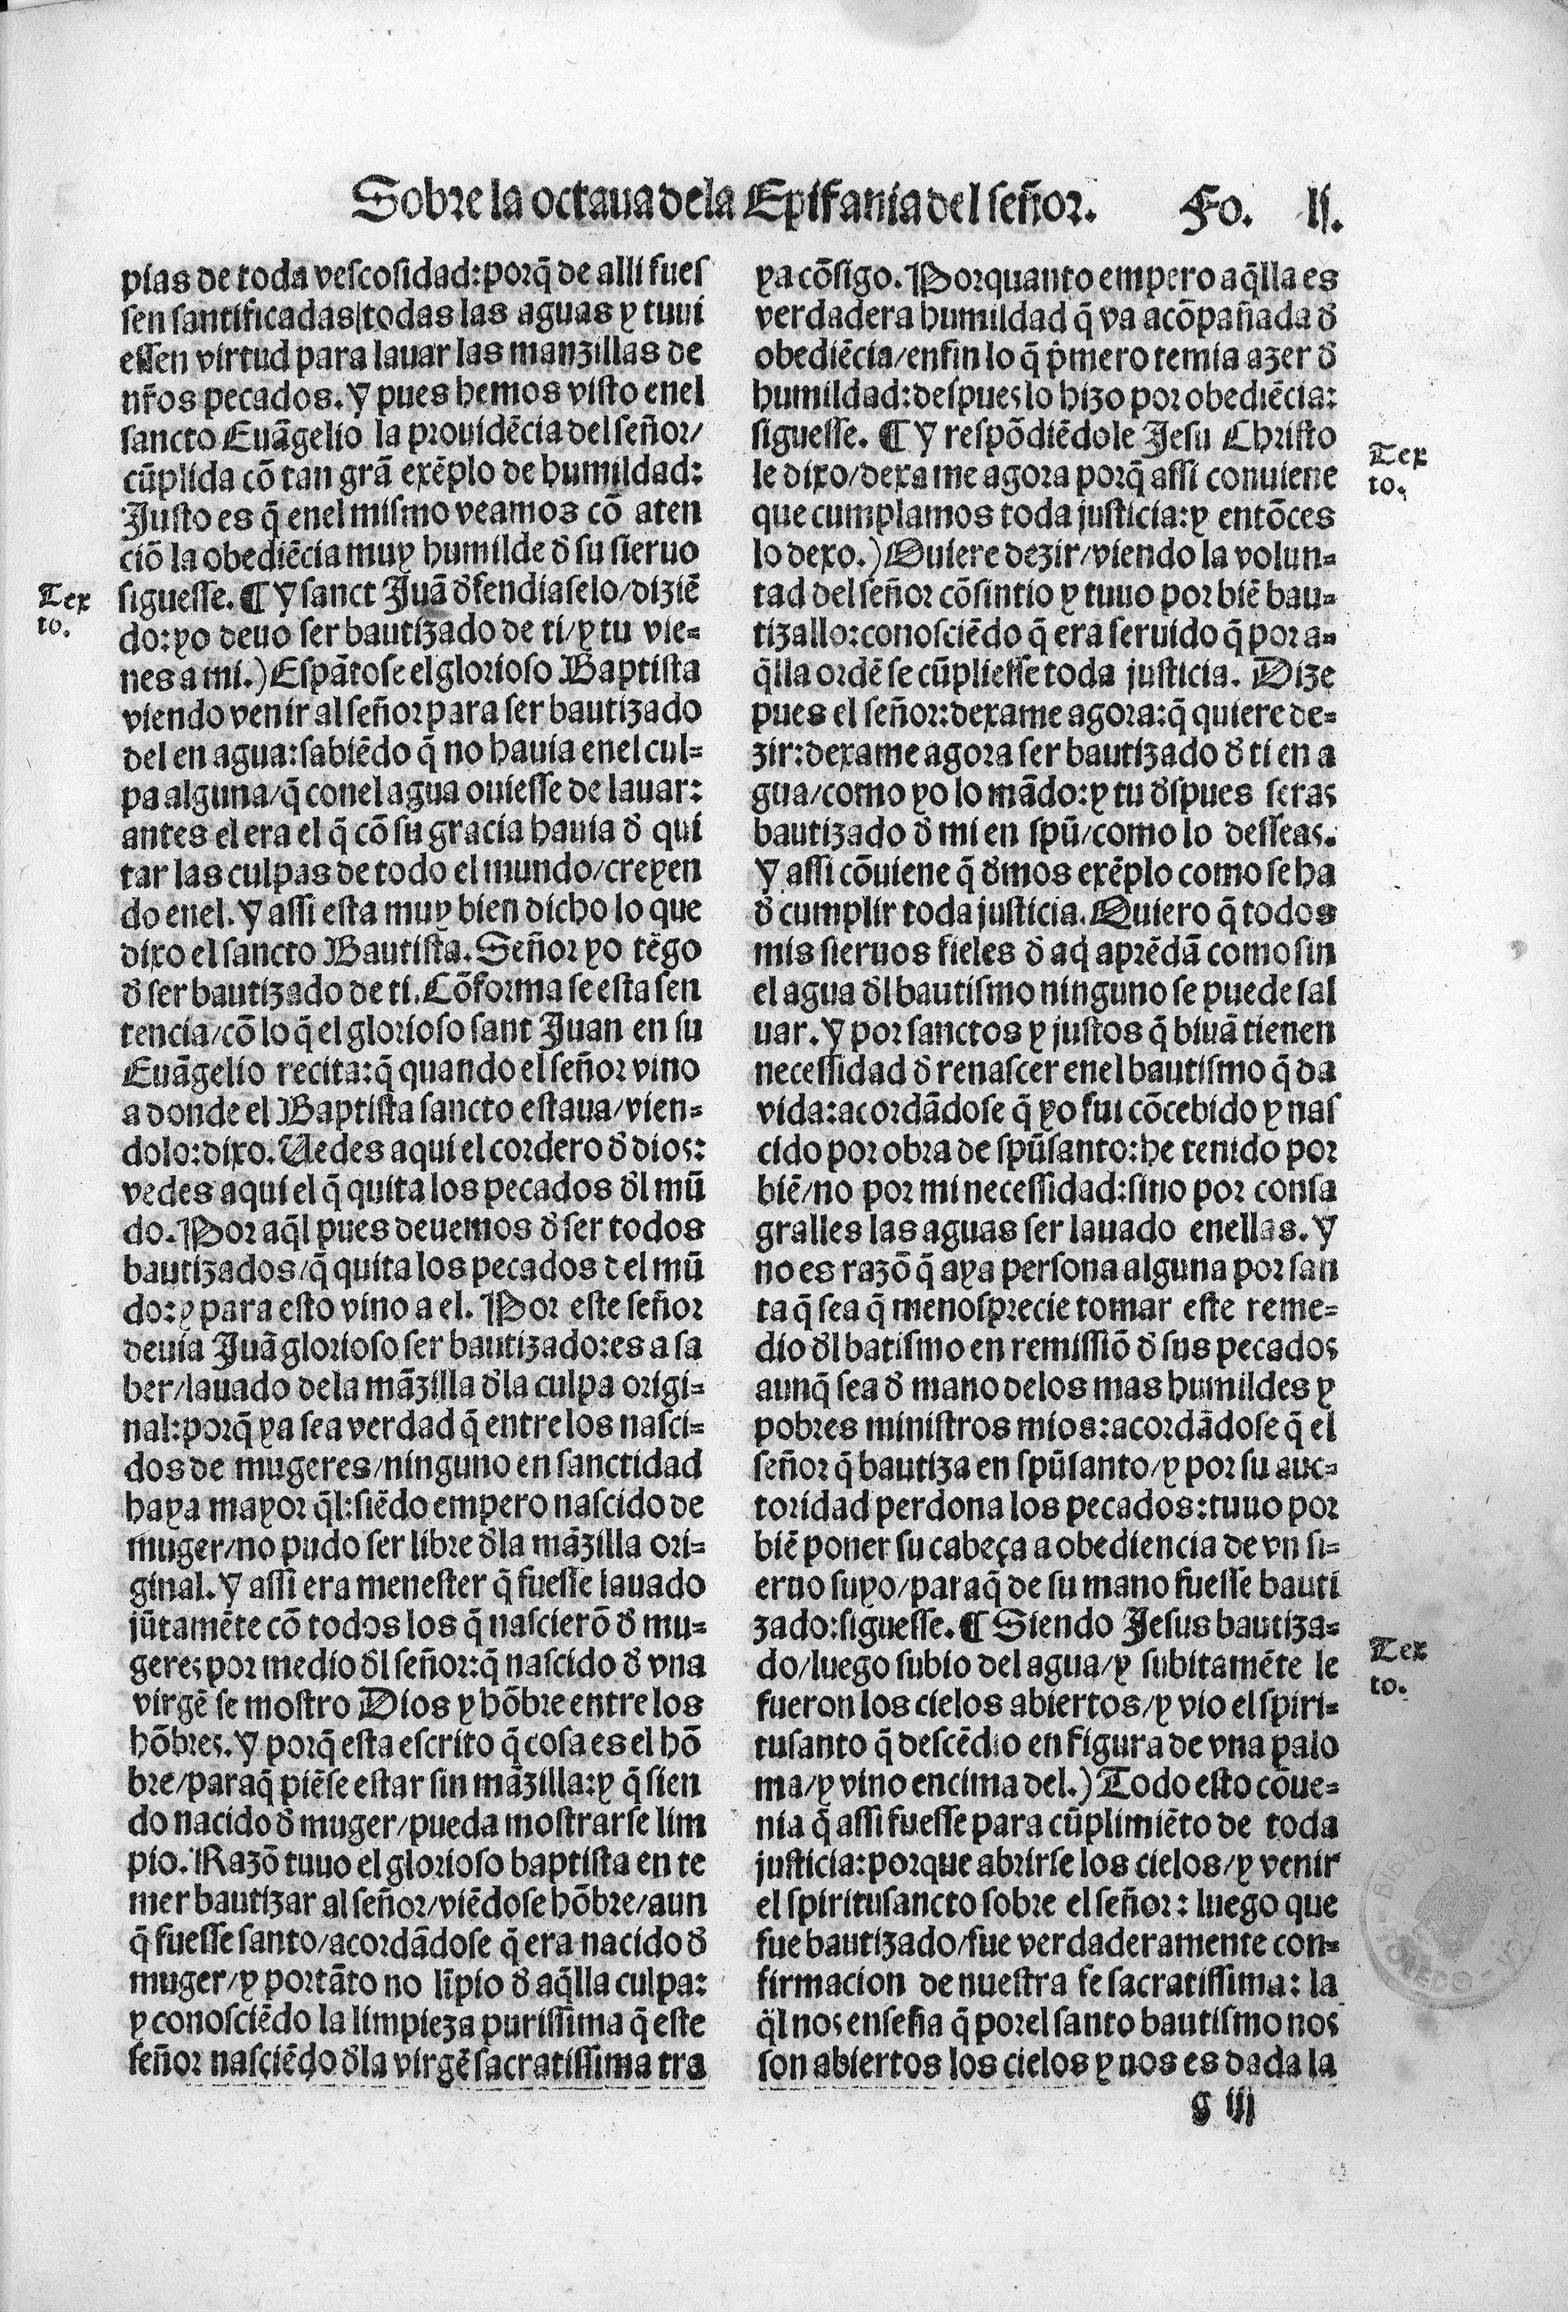 Sobre la octaua dela Epifania del señor. Fo. lj.
pias de toda vescosidad: porq̃ de alli fues
sen santificadas/todas las aguas y tuui
essen virtud para lauar las manzillas de
nr̃os pecados. Y pues hemos visto enel
sancto Euãgelio la prouidẽcia del señor/
cũplida cõ tan grã exẽplo de humildad:
Justo es q̃ enel mismo veamos cõ aten
ciõ la obediẽcia muy humilde d̃ su sieruo
siguesse. ¶ Y sanct Juã d̃fendiaselo/diziẽ
do: yo deuo ser bautizado de ti/y tu vie=
nes a mi.) Espãtose el glorioso Baptista
viendo venir al señor para ser bautizado
del en agua: sabiẽdo q̃ no hauia enel cul=
pa alguna/q̃ conel agua ouiesse de lauar:
antes el era el q̃ cõ su gracia hauia d̃ qui
tar las culpas de todo el mundo/creyen
do enel. Y assi esta muy bien dicho lo que
dixo el sancto Bautista. Señor yo tẽgo
d̃ ser bautizado de ti. Cõforma se esta sen
tencia/cõ lo q̃ el glorioso sant Juan en su
Euãgelio recita: q̃ quando el señor vino
a donde el Baptista sancto estaua/vien=
dolo: dixo. Uedes aqui el cordero d̃ dios:
vedes aqui el q̃ quita los pecados d̃l mũ
do. Por aq̃l pues deuemos d̃ ser todos
bautizados/q̃ quita los pecados del mũ
do: y para esto vino a el. Por este señor
deuia Juã glorioso ser bautizado: es a sa
ber/lauado dela mãzilla d̃la culpa origi=
nal: porq̃ ya sea verdad q̃ entre los nasci=
dos de mugeres/ninguno en sanctidad
haya mayor q̃l: siẽdo empero nascido de
muger/no pudo ser libre d̃la mãzilla ori=
ginal. Y assi era menester q̃ fuesse lauado
jũtamẽte cõ todos los q̃ nascierõ d̃ mu=
geres por medio d̃l señor: q̃ nascido d̃ vna
virgẽ se mostro Dios y hõbre entre los
hõbres. Y porq̃ esta escrito q̃ cosa es el hõ
bre/paraq̃ piẽse estar sin mãzilla: y q̃ sien
do nacido d̃ muger/pueda mostrarse lim
pio. Razõ tuuo el glorioso baptista en te
mer bautizar al señor/viẽdose hõbre/aun
q̃ fuesse santo/acordãdose q̃ era nacido d̃
muger/y portãto no lĩpio d̃ aq̃lla culpa:
y conosciẽdo la limpieza purissima q̃ este
señor nasciẽdo d̃la virgẽ sacratissima tra
Tex
to.
ya cõsigo. Porquanto empero aq̃lla es
verdadera humildad q̃ va acõpañada d̃
obediẽcia/enfin lo q̃ p̃mero temia azer d̃
humildad: despues lo hizo por obediẽcia:
siguesse. ¶ Y respõdiẽdole Jesu Christo
le dixo/dexa me agora porq̃ assi conuiene
que cumplamos toda justicia: y entõces
lo dexo.) Quiere dezir/viendo la volun=
tad del señor cõsintio y tuuo por biẽ bau=
tizallo: conosciẽdo q̃ era seruido q̃ por a=
q̃lla ordẽ se cũpliesse toda justicia. Dize
pues el señor: dexame agora: q̃ quiere de=
zir: dexame agora ser bautizado d̃ ti en a
gua/como yo lo mãdo: y tu d̃spues seras
bautizado d̃ mi en spũ/como lo desseas.
Y assi cõuiene q̃ d̃mos exẽplo como se ha
d̃ cumplir toda justicia. Quiero q̃ todos
mis sieruos fieles d̃ aq̃ aprẽdã como sin
el agua d̃l bautismo ninguno se puede sal
uar. Y por sanctos y justos q̃ biuã tienen
necessidad d̃ renascer enel bautismo q̃ da
vida: acordãdose q̃ yo fui cõcebido y nas
cido por obra de spũsanto: he tenido por
biẽ/no por mi necessidad: sino por consa
gralles las aguas ser lauado enellas. Y
no es razõ q̃ aya persona alguna por san
ta q̃ sea q̃ menosprecie tomar este reme=
dio d̃l batismo en remissiõ d̃ sus pecados
aunq̃ sea d̃ mano delos mas humildes y
pobres ministros mios: acordãdose q̃ el
señor q̃ bautiza en spũsanto/y por su auc=
toridad perdona los pecados: tuuo por
biẽ poner su cabeça a obediencia de vn si=
eruo suyo/paraq̃ de su mano fuesse bauti
zado: siguesse. ¶ Siendo Jesus bautiza=
do/luego subio del agua/y subitamẽte le
fueron los cielos abiertos/y vio el spiri=
tusanto q̃ descẽdio en figura de vna palo
ma/y vino encima del.) Todo esto cõue=
nia q̃ assi fuesse para cũplimiẽto de toda
justicia: porque abrirse los cielos/y venir
el spiritusancto sobre el señor: luego que
fue bautizado/fue verdaderamente con=
firmacion de nuestra fe sacratissima: la
q̃l nos enseña q̃ porel santo bautismo nos
son abiertos los cielos y nos es dada la
Tex
to.
Tex
to.
g iij
TOLEDO